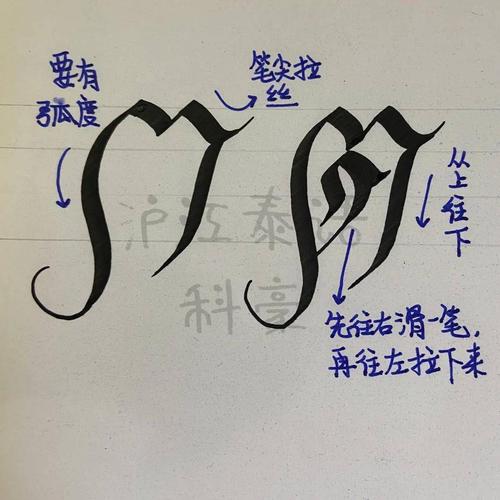 要有
弧度
笔尖拉
丝
从
上
往
下
沪江泰语
科
先往右滑一笔，
再往左拉下来